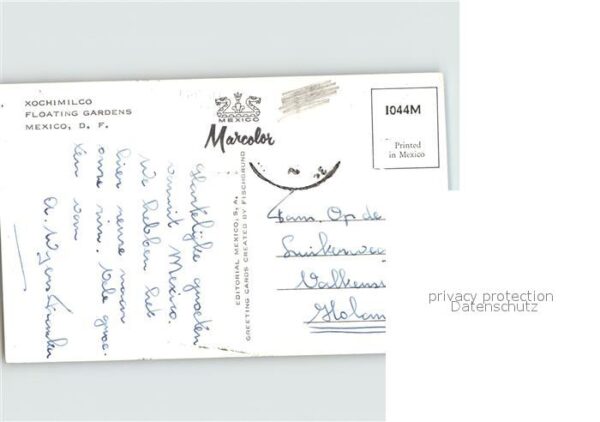 XOCHIMILCO
FLOATING GARDENS
MEXICO, D. F.
MEXICO
Marcolor
1044M
Printed
in Mexico
EDITORIAL MEXICO, S. A.
GREETING CARDS CREATED BY FISCHGRUND
Hartelijke groeten
vanuit Mexico.
We hebben het
hier reuze naar
onze zin. Vele groe-
ten van
Fam. Op de
Holan
privacy protection
Datenschutz